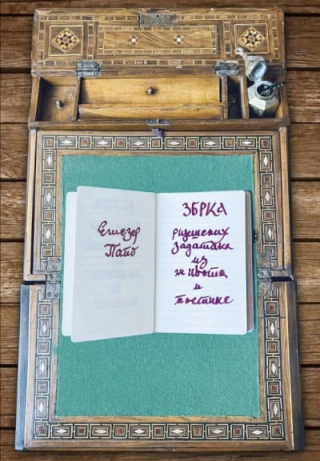 Елиезер
Папо
ЗБРКА
рјешених
задатака
из
живота
и
поетике